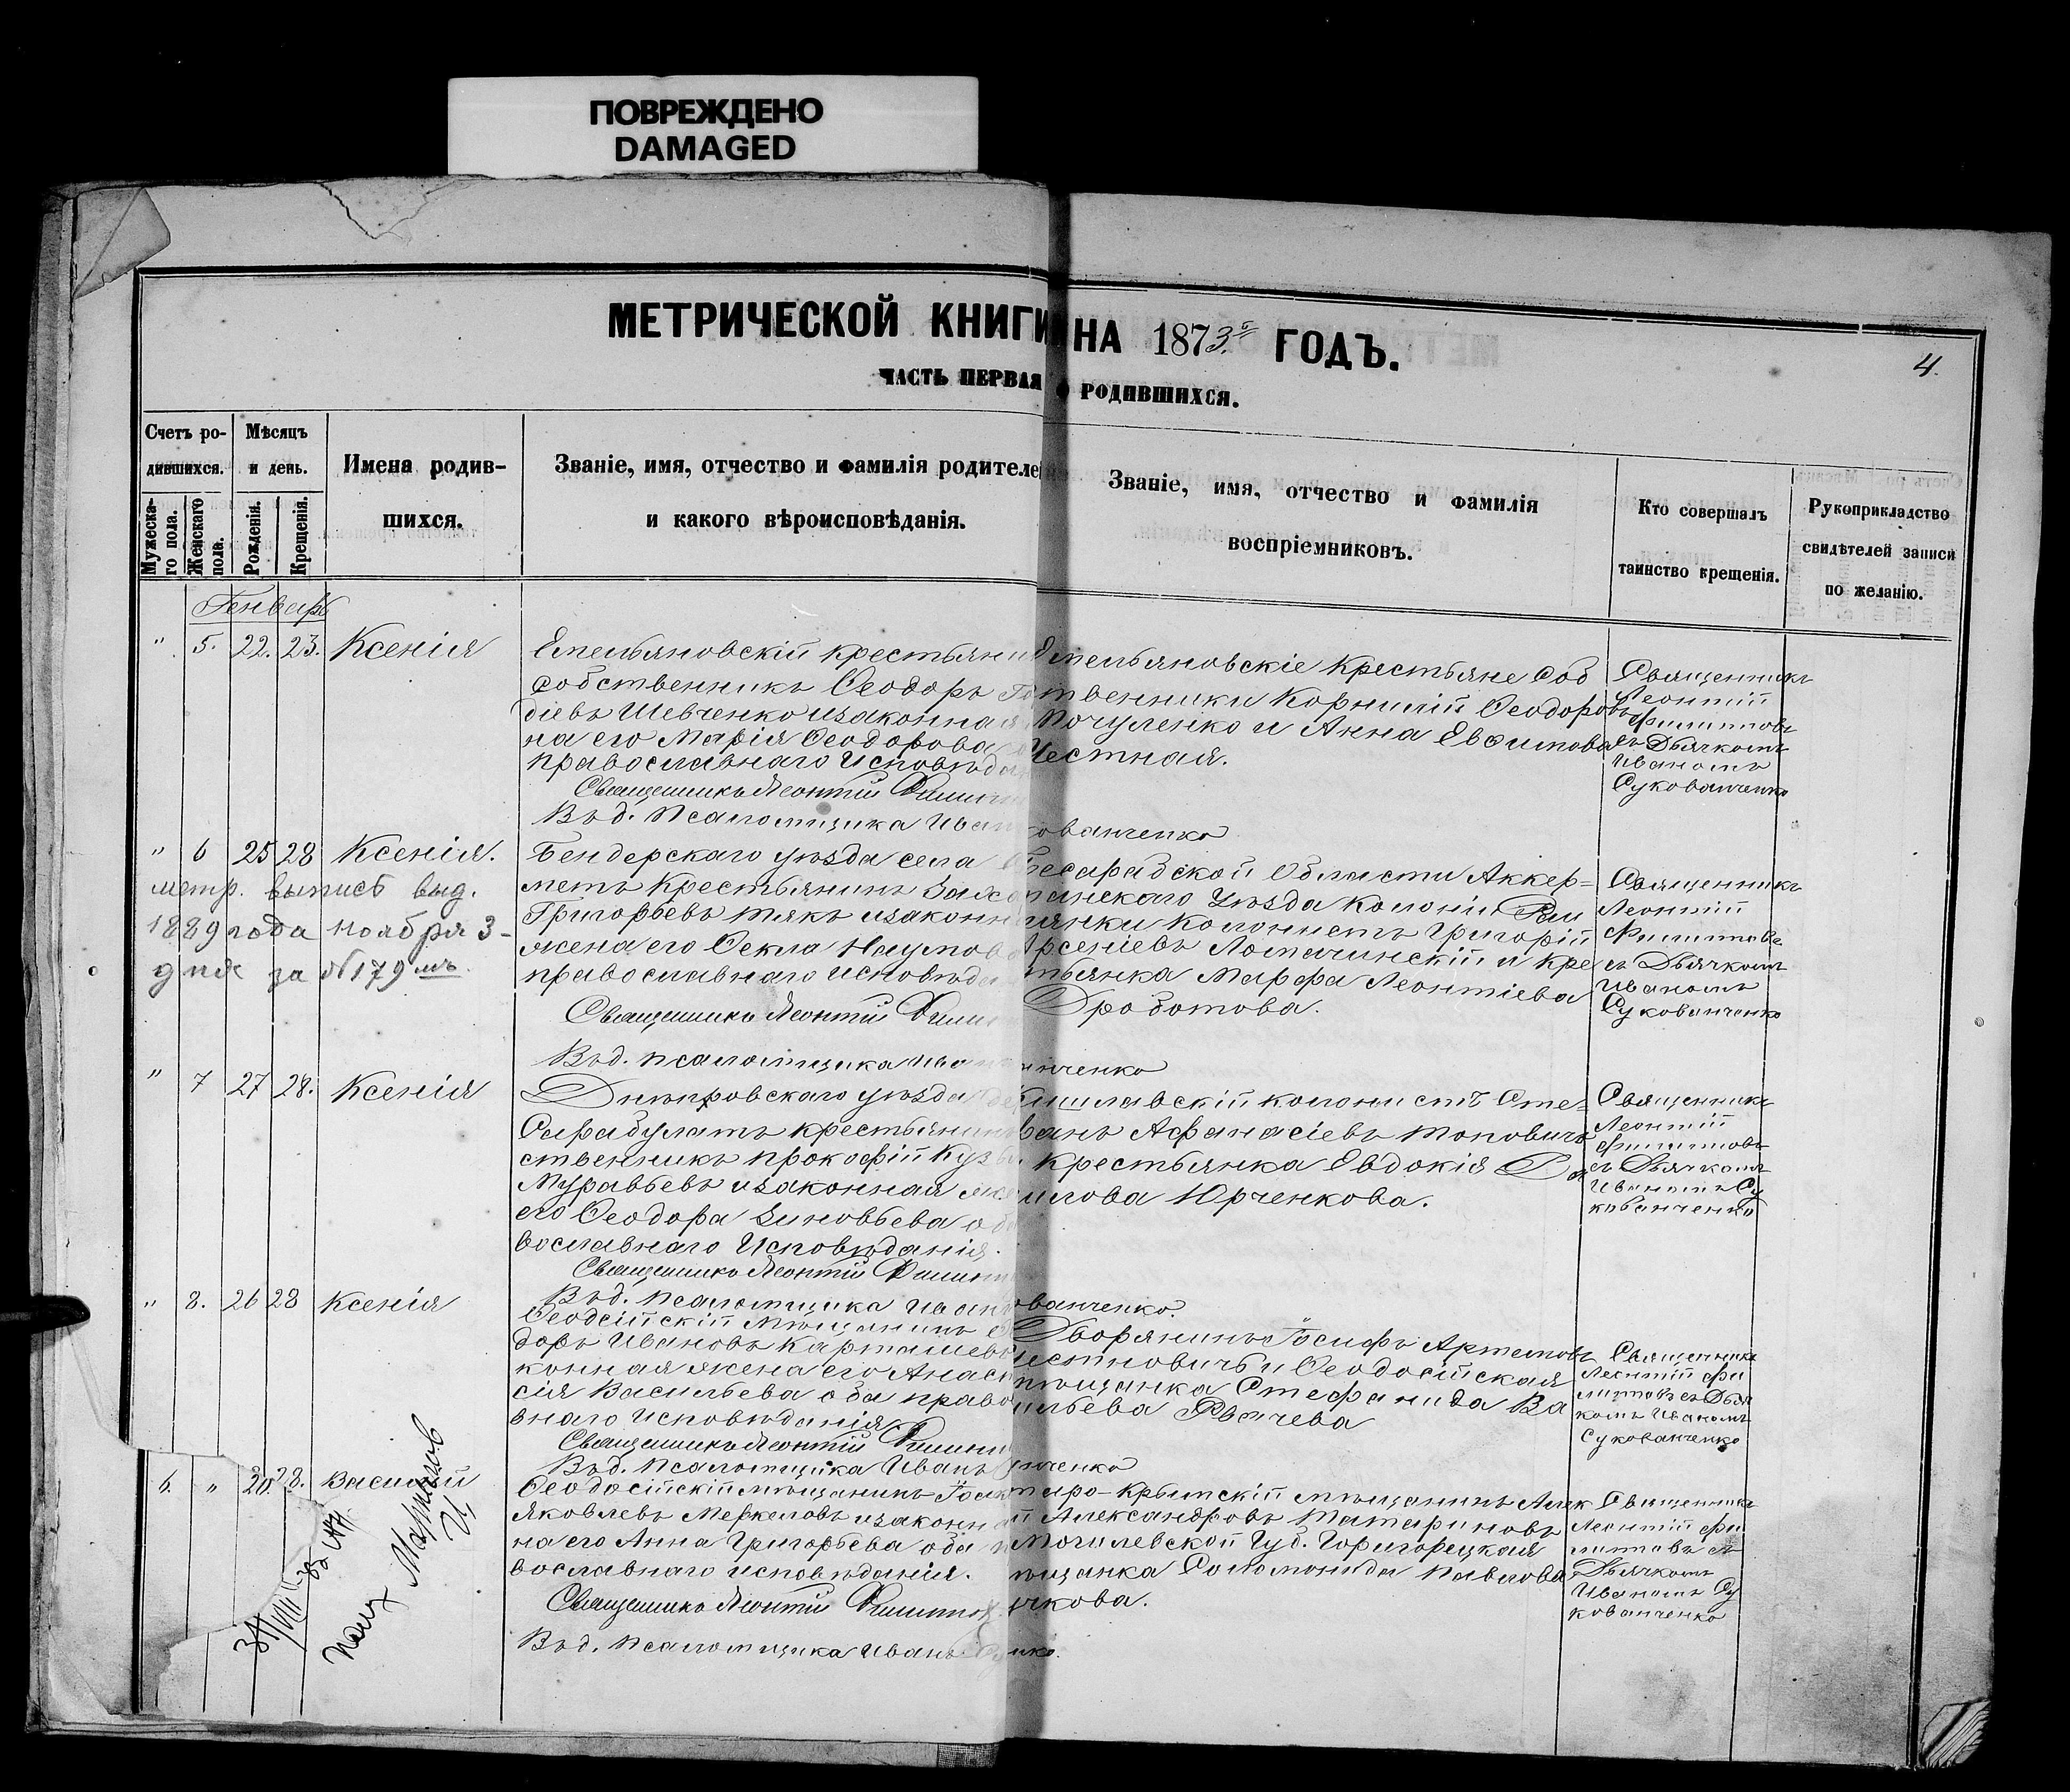 ПОВРЕЖДЕНО
DAMAGED
МЕТРИЧЕСКОЙ КНИГИ НА 1873 ГОДЪ.
4.
ЧАСТЬ ПЕРВАЯ РОДИВШИХСЯ.
Счетъ ро-
дившихся.
Мужеска-
го пола.
Женскаго
пола.
Мѣсяцъ
и день.
Рожденія.
Крещенія.
Имена родив-
шихся.
Званіе, имя, отчество и фамилія родителей
и какого вѣроисповѣданія.
Званіе, имя, отчество и фамилія
воспріемниковъ.
Кто совершалъ
таинство крещенія.
Рукоприкладство
свидѣтелей записи
по желанію.
Генварь
" 5. 22. 23. Ксенія
Емельяновскій крестьянин
собственникъ Ѳеодоръ
діевъ Шевченко изаконная
на его Марія Ѳеодорова
православнаго Исповѣда
Священникъ Леонтій Филип
В. д. Псаломщика Иван ованченко
Емельяновскіе Крестьяне Соб
твенники Корнилій Ѳеодоровъ
Мочуленко и Анна Евѳимова
Честная.
Священникъ
Леонтій
Филипповъ
съ Дьячкомъ
Иваномъ
Сукованченко
" 6 25 28 Ксенія.
метр. выпись выд.
1889 года ноября 3-
дня за №179мъ.
Бендерскаго уѣзда села
меть Крестьянинъ Заха
Григорьевъ Тякъ изаконн
жена его Ѳекла Наумов
православнаго исповѣда
Священникъ Леонтій Фили
В. д. псаломщика Ива нченко
Бесарабской Области Аккер=
манскаго Уѣзда Колоніи
колонистъ Григорій
Арсеніевъ Ломачинскій и Кре
тьянка Марфа Леонтіева
Дроботова.
Священникъ
Леонтій
Филиппове
съ Дьячкомъ
Иваномъ
Сукованченко
" 7 27 28. Ксенія
Днѣпровскаго уѣзда
Сарабулатъ крестьянин
ственникъ прокофій Кузь
Муравьевъ изаконная же
его Ѳеодора Зиновьева об
вославнаго Исповѣданія.
Священникъ Леонтій Филипп
В. д. Псаломщика Иван ованченко.
шлавскій колонистъ Сте=
ванъ Афанасіевъ Топовичъ
Крестьянка Евдокія Да
илова Юрченкова.
Священникъ
Леонтій
Филипповъ
съ Дьячкомъ
Иваномъ Су
кованченко
" 8. 26 28 Ксенія
Ѳеодсійскій Мѣщанинъ Ѳе
доръ Ивановъ Карташевъ
конная жена его Анас
сія Васильева оба право
внаго Исповѣданія
Священникъ Леонтій Филип
В. д. Псаломщика Иванъ нченко
Дворянинъ Іосифъ Артемовъ
истновичъ и Ѳеодосійская
мѣщанка Стефанида Ва
ильева Рвачева
Священникъ
Леонтій Фи
липповъ съ Дья
комъ Иваномъ
Сукованченко
6. " 20. 28. Василій
Ѳеодосійскій мѣщанинъ Іос
Яковлевъ Меркеловъ изаконн
на его Анна Григорьева оба п
вославнаго исповѣданія.
Священникъ Леонтій Филиппов
В. д. Псаломщика Иванъ нко.
таро-Крымскій мѣщанинъ Алек
й Александровъ Татариновъ
Могилевской Губ. Горигорецкая
мѣщанка Соломонида Павлова
чкова.
Священникъ
Леонтій Фи
липповъ съ
Дьячкомъ
Иваномъ Су
кованченко